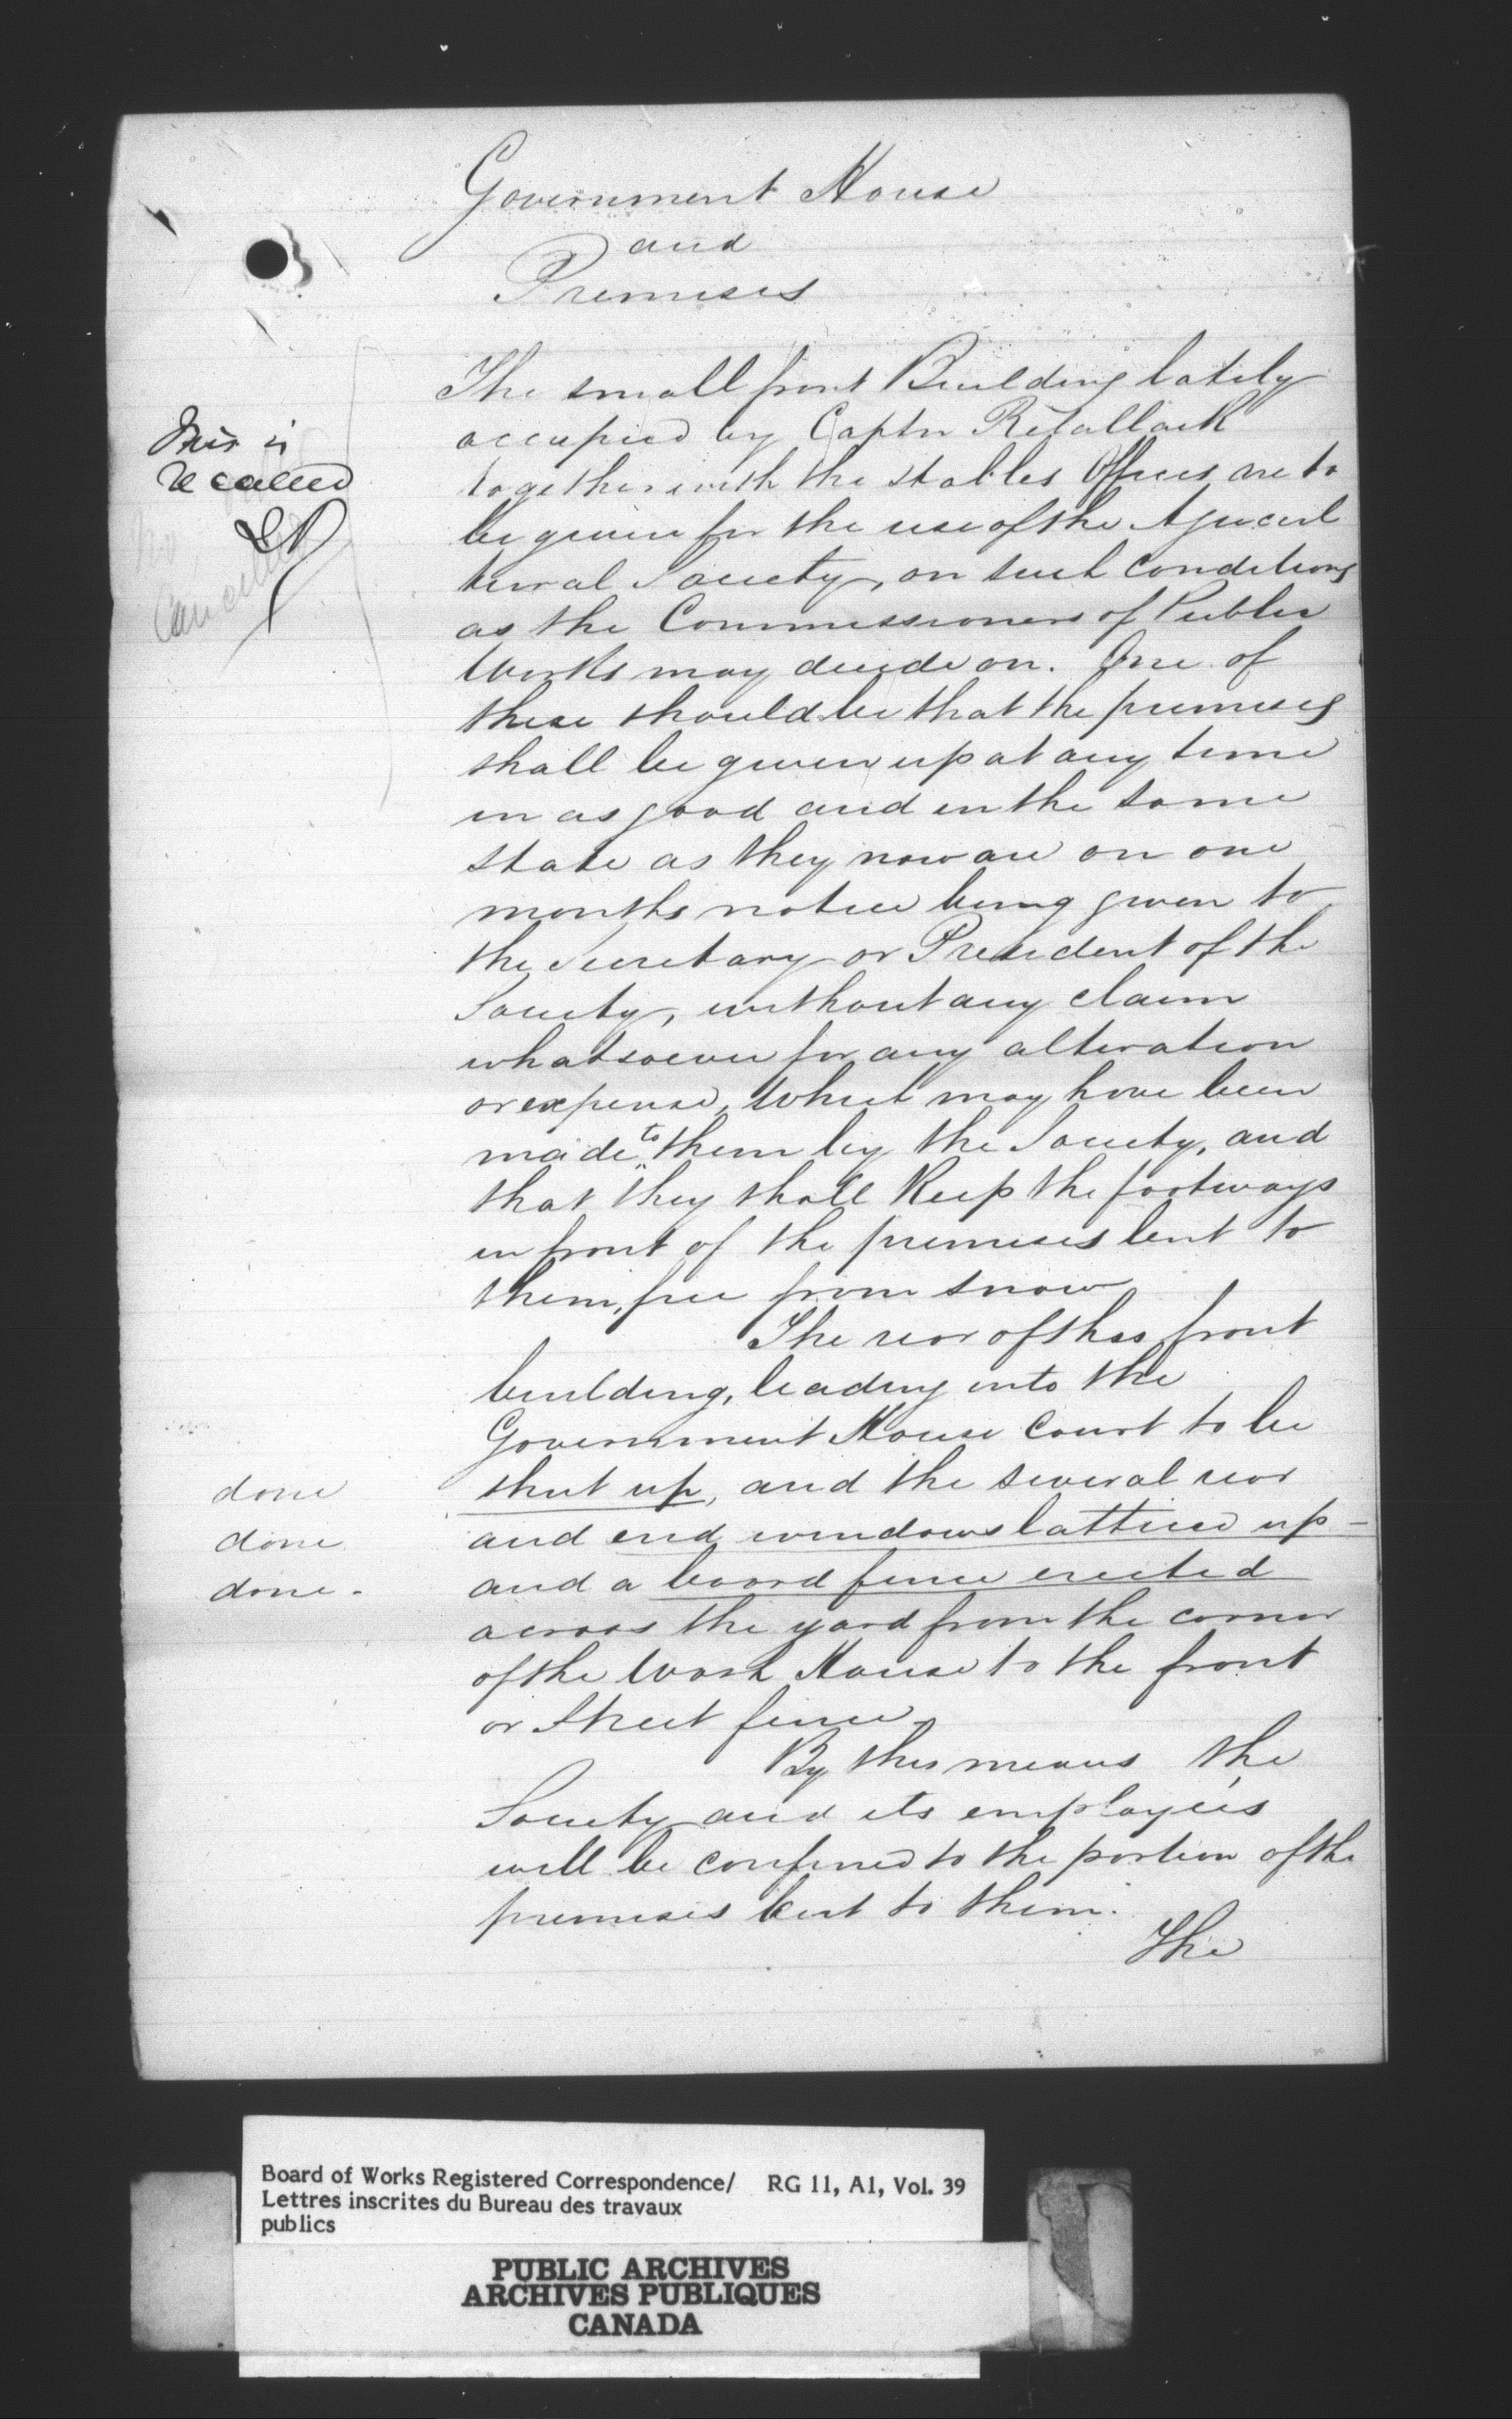 Government House
and
Premises
The small front Building lately
occupied by Captn Retallack
together with the stables Offices are to
be given for the use of the Agricul
tural Society, on such conditions
as the Commissioners of Public
Works may decide on. One of
these should be that the premises
shall be given up at any time
in as good and in the same
state as they now are on one
months notice being given to
the Secretary or President of the
Society, without any claim
whatsoever for any alteration
or expense, which may have been
made to them by the Society, and
that they shall keep the footways
in front of the premises lent to
them, free from snow
The rear of this front
building, leading into the
Government House Court to be
shut up, and the several rear
and end windows latticed up -
and a board fence erected
across the yard from the corner
of the Wash House to the front
or Street fence.
By this means the
Society and its employees
will be confined to the portion of the
premises lent to them.
The
This is
recalled
Cancelled
done
done
done.
Board of Works Registered Correspondence/ RG 11, A1, Vol. 39
Lettres inscrites du Bureau des travaux
publics
PUBLIC ARCHIVES
ARCHIVES PUBLIQUES
CANADA